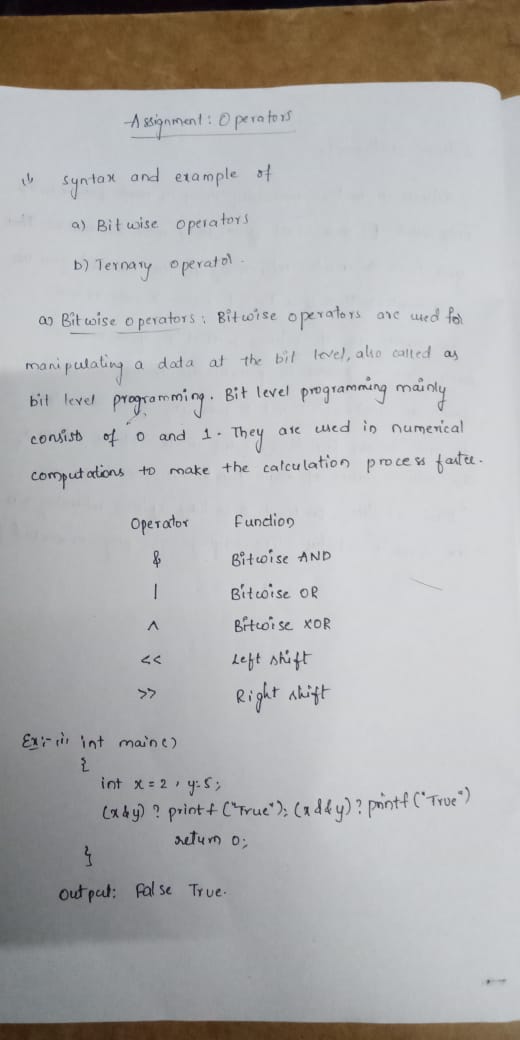 Assignment: Operators
1) syntax and example of
a) Bitwise operators
b) Ternary operator.
a) Bitwise operators: Bitwise operators are used for
manipulating a data at the bit level, also called as
bit level programming. Bit level programming mainly
consists of 0 and 1. They are used in numerical
computations to make the calculation process faster.
Operator Function
& Bitwise AND
| Bitwise OR
^ Bitwise XOR
<< Left shift
>> Right shift
Ex:- (i) int main()
{
int x = 2, y=5;
(x&y) ? printf ("True"); (x&&y)? printf ("True")
return 0;
}
output: False True.